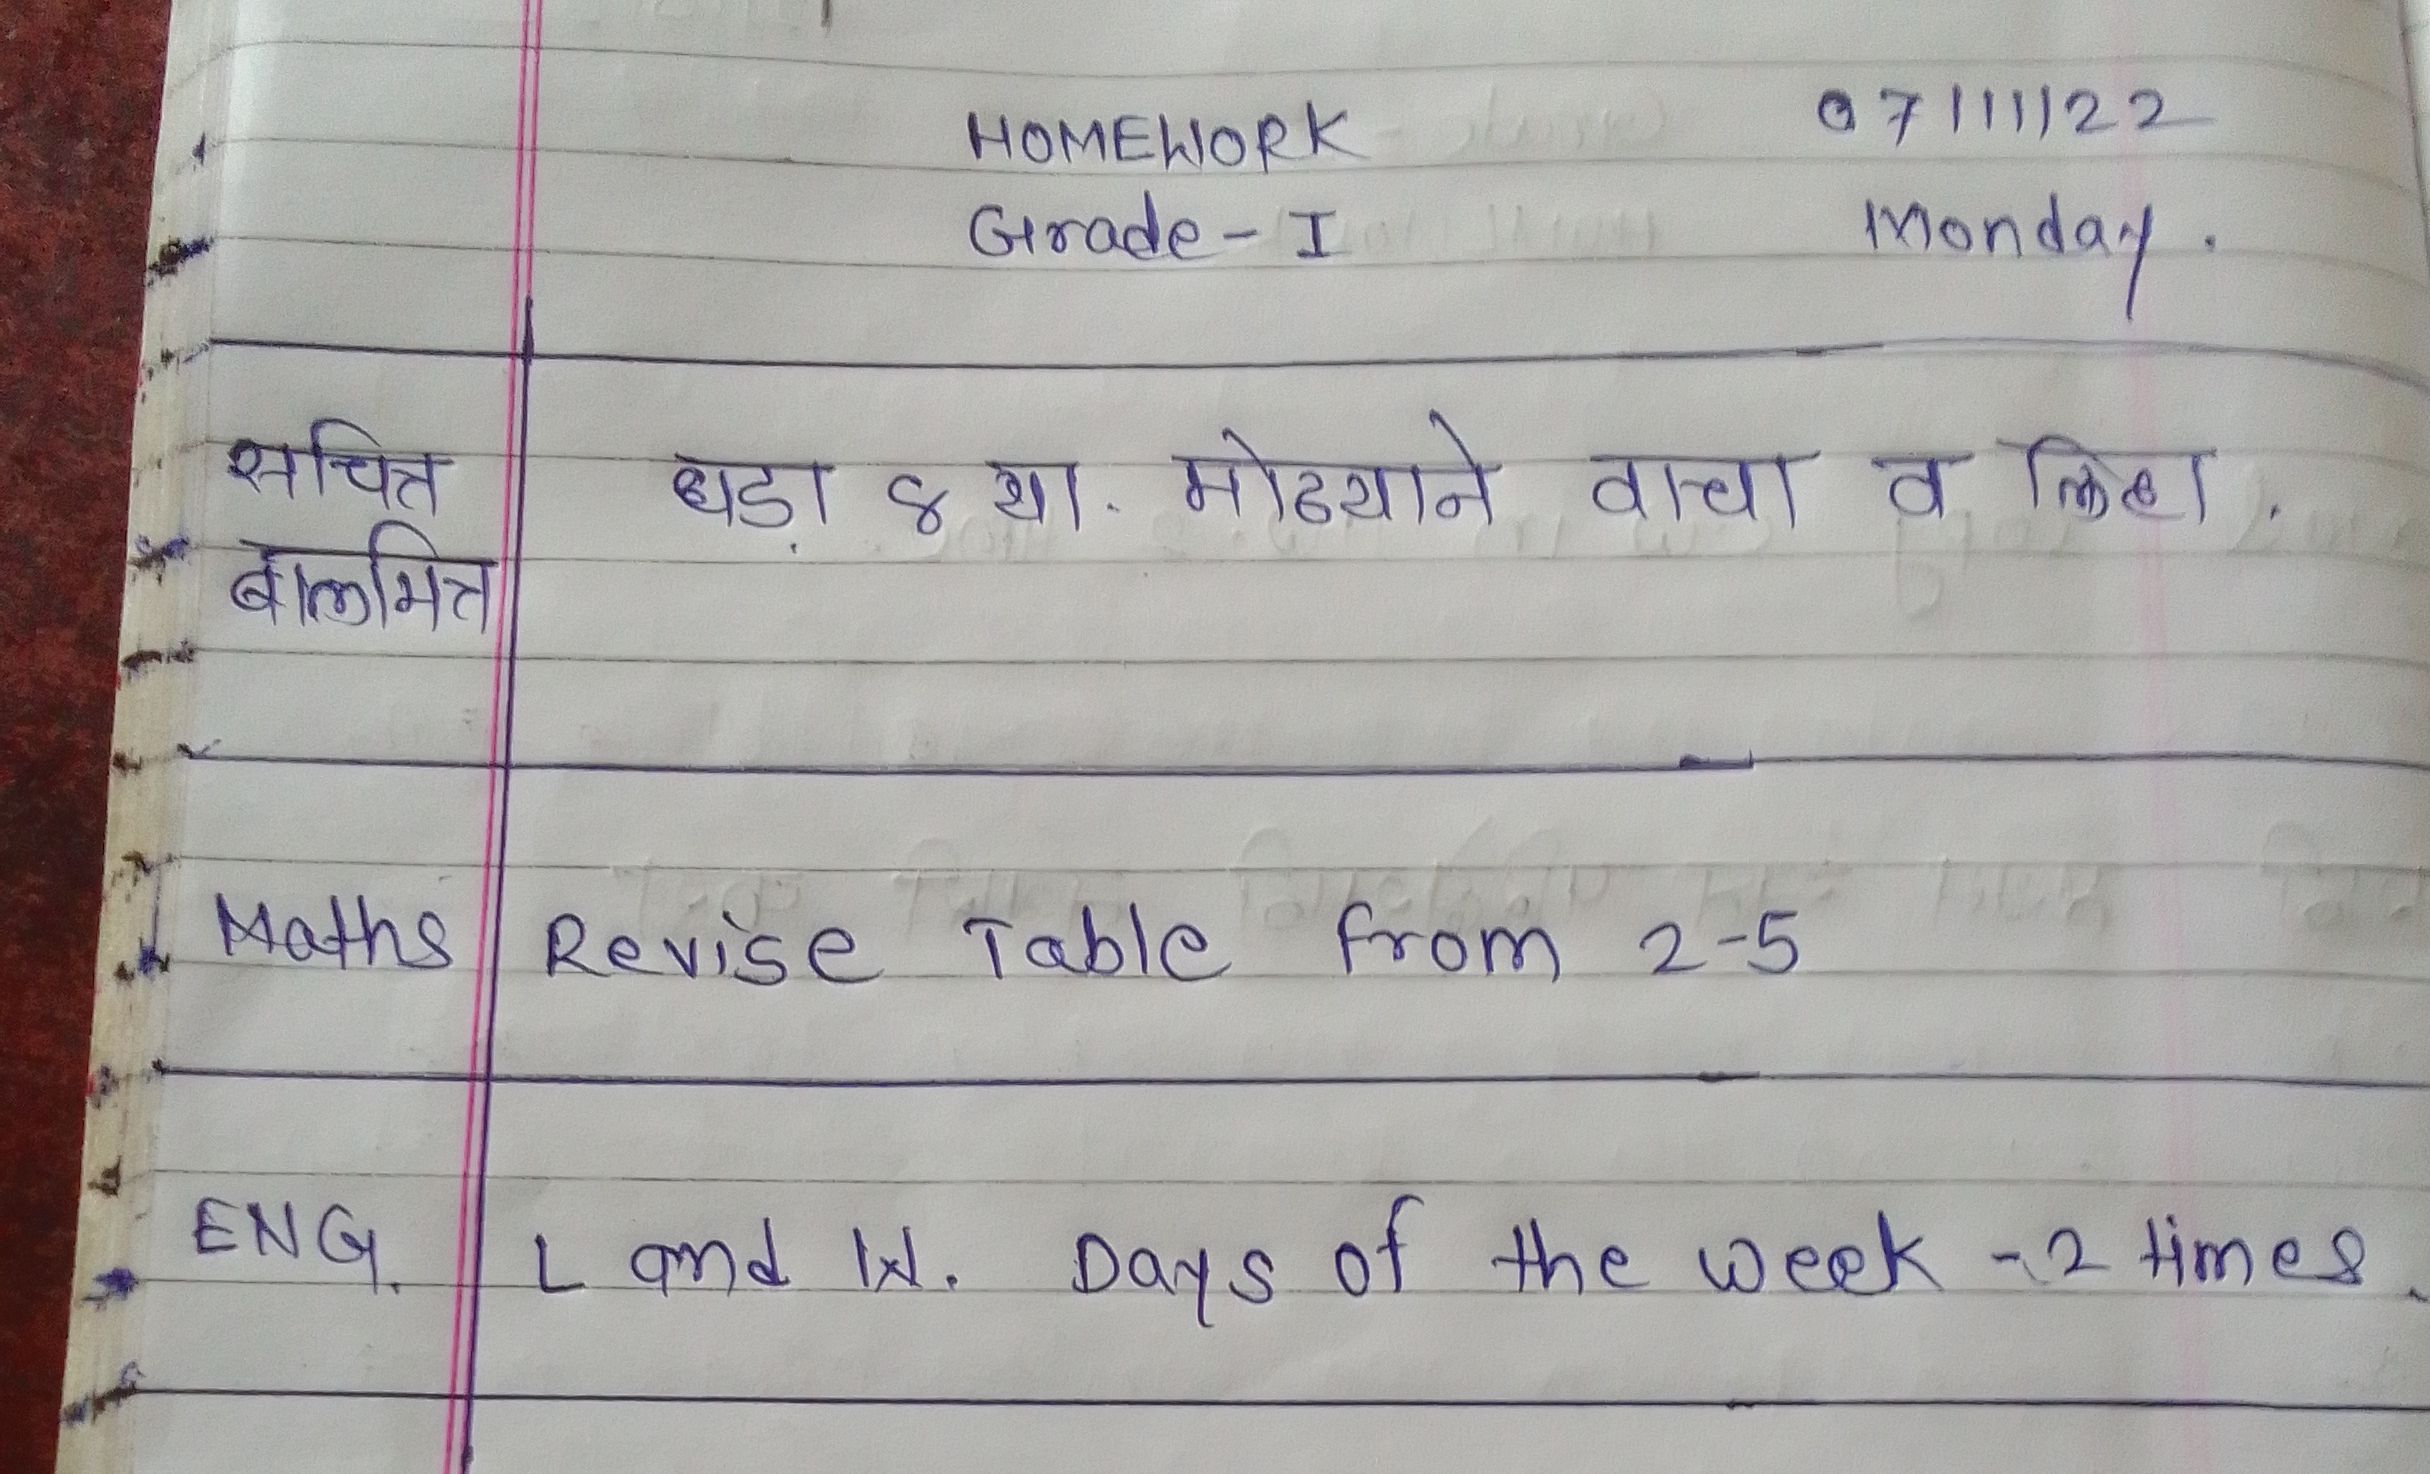 HOMEWORK 07/11/22
Grade - I Monday.
सचित्र धडा ४ था. मोठ्याने वाचा व लिहा.
बालमित्र
Maths Revise Table from 2-5
ENG. L and W. Days of the week - 2 times.